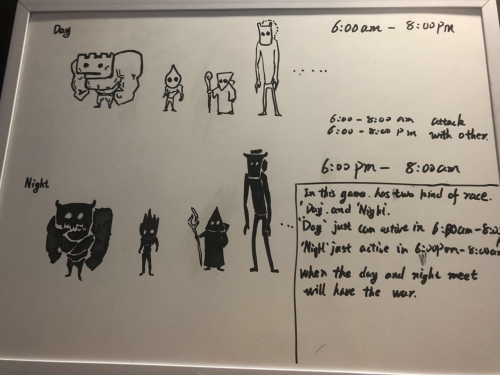 Day
6:00am - 8:00pm
6:00 - 8:00 am attack
6:00 - 8:00 pm with other.
6:00pm - 8:00am
Night
In this game. has two kind of race.
"Day" and "Night".
"Day" just can active in 6:00am - 8:00
"Night" just active in 6:00pm - 8:00am
when the day and night meet
will have the war.